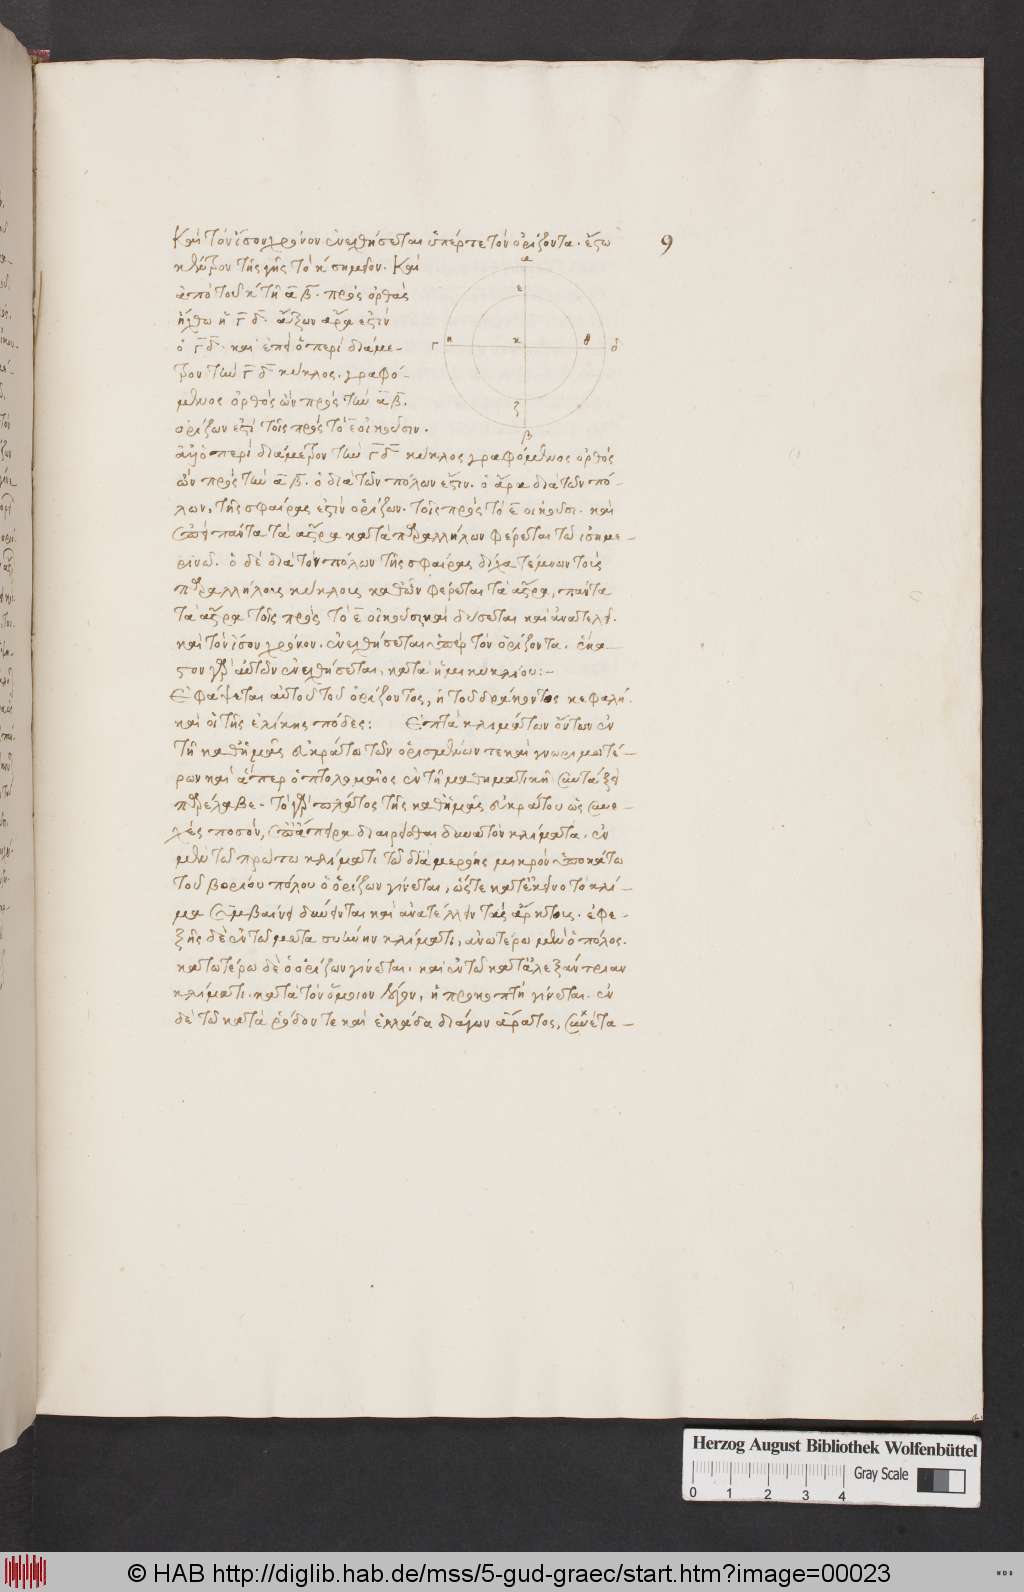 Καὶ τὸν ἴσον χρόνον ἐνεχθήσεται ὑπέρ τε τὸν ὁρίζοντα. ἔστω
9
κέντρον τῆς γῆς τὸ κ σημεῖον. Καὶ
ἀπὸ τοῦ κ τῇ α β. πρὸς ὀρθὰς
ἤχθω ἡ γ δ. αὔξων ἄρα ἐστὶν
ὁ γ δ. καὶ ἐπεὶ ὁ περὶ διάμε-
τρον τὴν γ δ κύκλος. γραφό-
μενος ὀρθὸς ὢν πρὸς τὴν α β.
ὁρίζων ἐστὶ τοῖς πρὸς τὸ ε οἰκοῦσιν.
α
ε
γ
η
κ
θ
δ
ζ
β
περὶ διάμετρον τὴν γ δ κύκλος γραφόμενος ὀρθὸς
ὢν πρὸς τὴν α β. ὁ διὰ τῶν πόλων ἐστιν. ὁ ἄρα διὰ τῶν πό-
λων, τῆς σφαίρας ἐστὶν ὁρίζων. τοῖς πρὸς τὸ ε οἰκοῦσι. καὶ
πάντα τὰ ἄστρα κατὰ παραλλήλων φέρεται τῶ ἰσημε-
ρινῶ. ὁ δὲ διὰ τὸν πόλων τῆς σφαίρας δίχα τέμνων τοὺς
παραλλήλους κύκλους καθ' ὧν φέρεται τὰ ἄστρα, πάντα
τὰ ἄστρα τοῖς πρὸς τὸ ε οἰκοῦσι καὶ δύσεται καὶ ἀνατελεῖ.
καὶ τὸν ἴσον χρόνον. ἐνεχθήσεται ὑπὲρ τὸν ὁρίζοντα. ἕκα-
στον γὰρ αὐτῶν ἐνεχθήσεται, κατὰ ἡμικυκλίου:-
Εφάψεται αὐτοῦ τοῦ ὁρίζοντος, ἡ τοῦ δράκοντος κεφαλὴ.
καὶ οἱ τῆς ἑλίκης πόδες: Επτὰ κλιμάτων ὄντων ἐν
τῇ καθ' ἡμᾶς εὐκράτω τῶν ὁρισμένων τε καὶ γνωριμωτέ-
ρων καὶ ἅπερ ὁ πτολεμαῖος ἐν τῇ μαθηματικῇ συντάξει
παρέλαβε. τὸ γὰρ πλάτος τῆς καθ' ἡμᾶς εὐκράτου ὡς συνε-
χὲς ποσὸν, διαιρεῖσθαι δυνατὸν κλίματα. ἐν
μὲν τῶ πρώτω κλίματι τῶ διὰ μερόης μικρὸν ὑποκάτω
τοῦ βορείου πόλου ὁ ὁρίζων γίνεται, ὥστε κατ' ἐκεῖνο τὸ κλί-
μα συμβαίνει δύνειν τε καὶ ἀνατέλλειν τὰς ἄρκτους. ἐφε-
ξῆς δὲ ἐν τῶ μετὰ συήνην κλίματι, ἀνωτέρω μὲν ὁ πόλος.
κατωτέρω δὲ ὁ ὁρίζων γίνεται. καὶ ἐν τῶ κατ' ἀλεξάνδρειαν
κλίματι. κατὰ τὸν ὅμοιον λόγον, ἡ προκοπὴ γίνεται. ἐν
δὲ τῶ κατὰ ῥόδον τε καὶ ἑλλάδα διάγων ἄρατος, συνέτα-
Herzog August Bibliothek Wolfenbüttel
Gray Scale
0 1 2 3 4
© HAB http://diglib.hab.de/mss/5-gud-graec/start.htm?image=00023